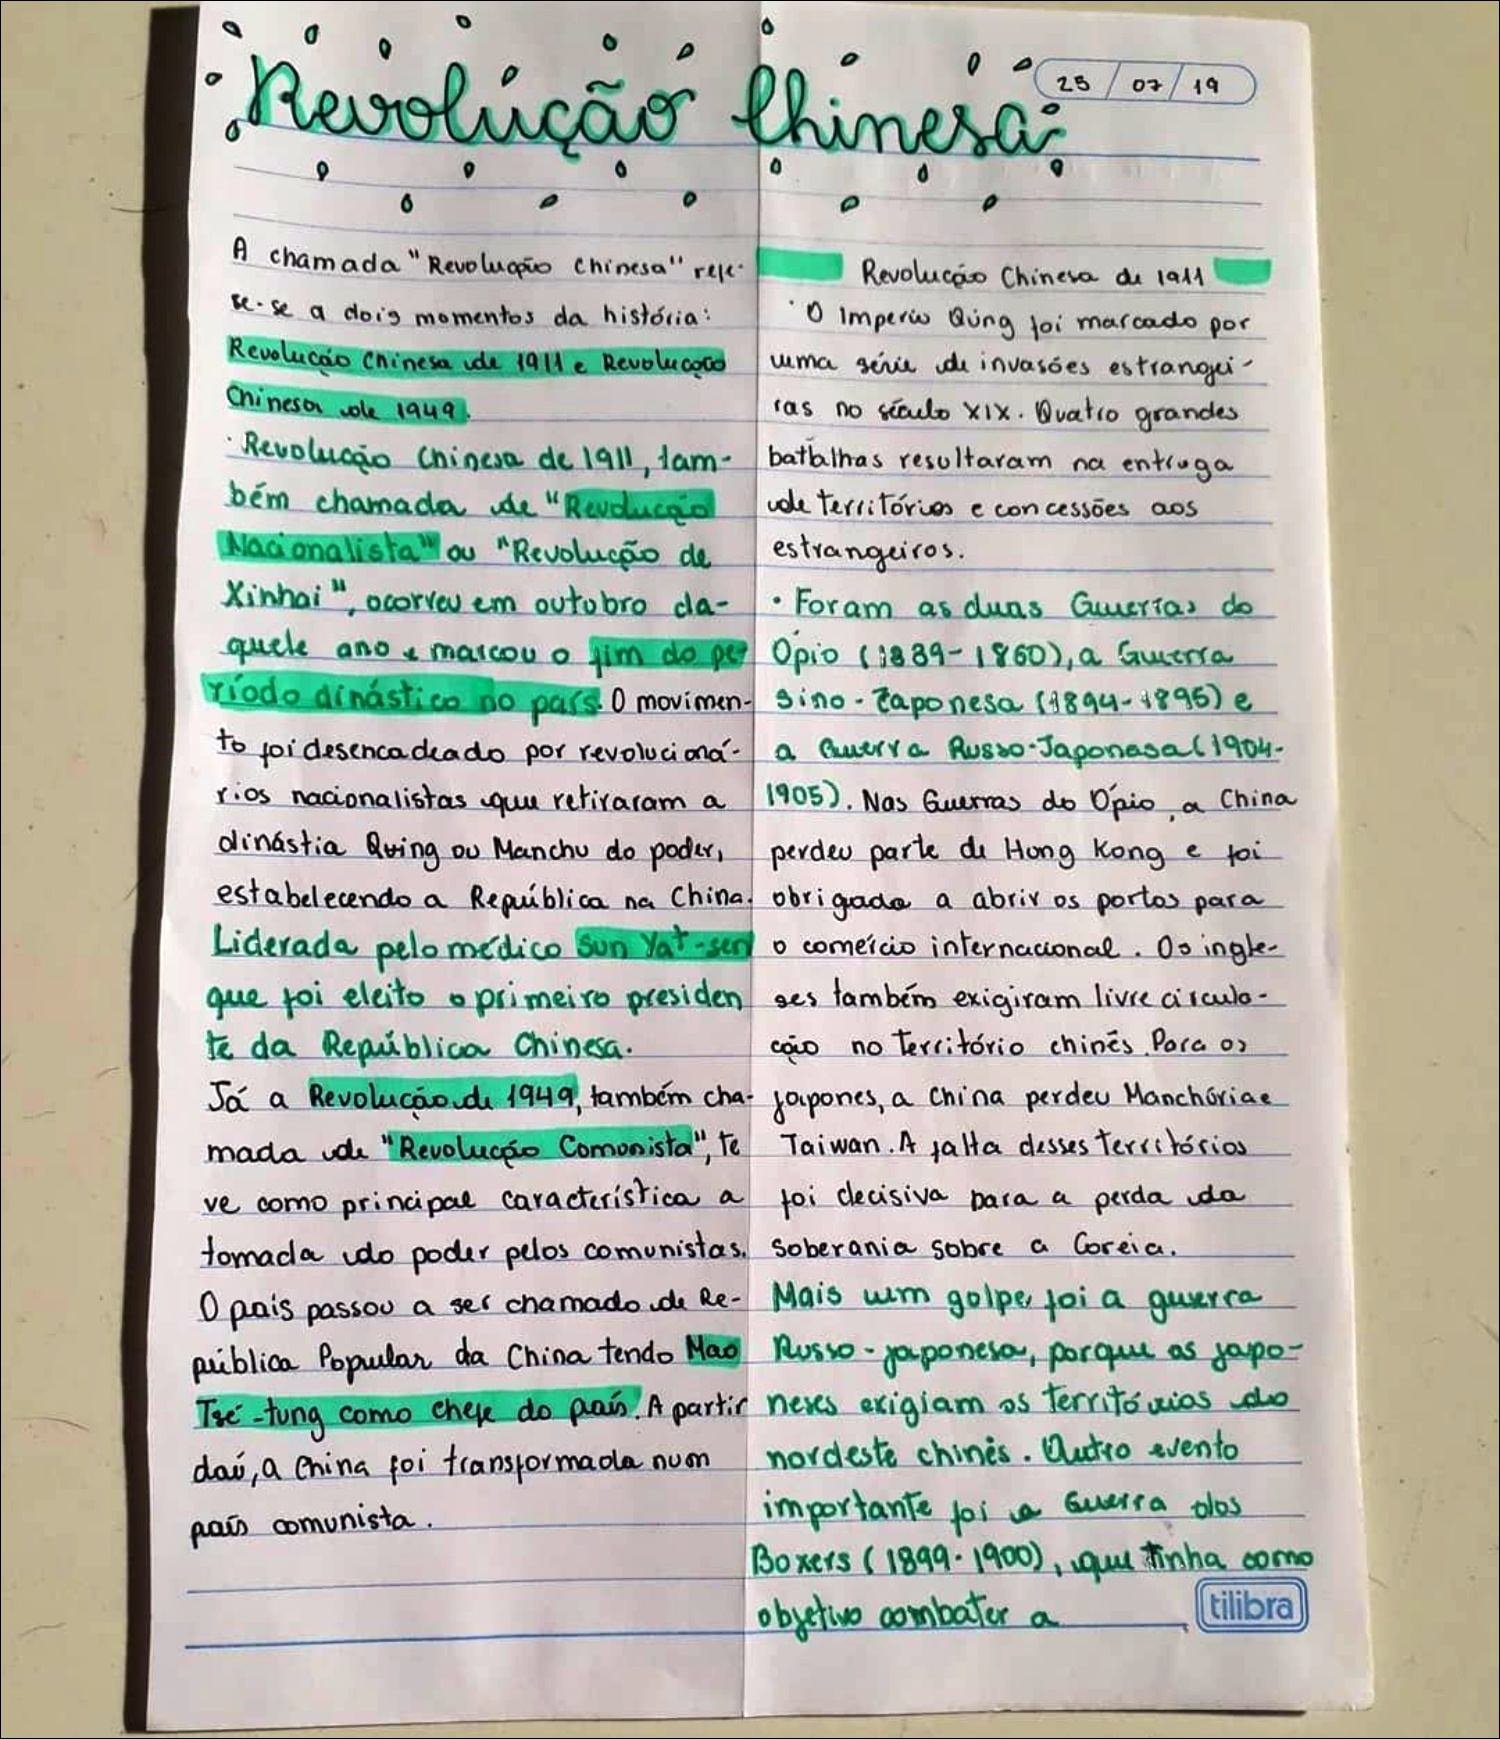 Revolução Chinesa
25/07/19
A chamada "Revolução Chinesa" refe-
se-se a dois momentos da história:
Revolução Chinesa de 1911 e Revolução
Chinesa de 1949.
· Revolução Chinesa de 1911, tam-
bém chamada de "Revolução
Nacionalista" ou "Revolução de
Xinhai", ocorreu em outubro da-
quele ano e marcou o fim do pe-
ríodo dinástico no país. O movimen-
to foi desencadeado por revolucioná-
rios nacionalistas que retiraram a
dinástia Quing ou Manchu do poder,
estabelecendo a República na China.
Liderada pelo médico Sun Yat-sen
que foi eleito o primeiro presiden
te da República Chinesa.
Já a Revolução de 1949, também cha-
mada de "Revolução Comunista", te
ve como principal característica a
tomada do poder pelos comunistas.
O país passou a ser chamado de Re-
pública Popular da China tendo Mao
Tsé-tung como chefe do país. A partir
daí, a China foi transformada num
país comunista.
Revolução Chinesa de 1911
· O Imperio Qúng foi marcado por
uma série de invasões estrangei-
ras no século XIX. Quatro grandes
batbalhas resultaram na entrega
de territórios e concessões aos
estrangeiros.
· Foram as duas Guerras do
Ópio (1839-1860), a Guerra
Sino-Japonesa (1894-1895) e
a Guerra Russo-Japonasa (1904-
1905). Nas Guerras do Ópio, a China
perdeu parte de Hong Kong e foi
obrigada a abrir os portos para
o comércio internacional. Os ingle-
ses também exigiram livre circula-
ção no território chinês. Para os
japones, a China perdeu Manchúria e
Taiwan. A falta desses territórios
foi decisiva para a perda da
soberania sobre a Coreia.
Mais um golpe foi a guerra
Russo-japonesa, porque os japo-
neses exigiam os territórios do
nordeste chinês. Outro evento
importante foi a Guerra dos
Boxers (1899-1900), que tinha como
objetivo combater a
tilibra